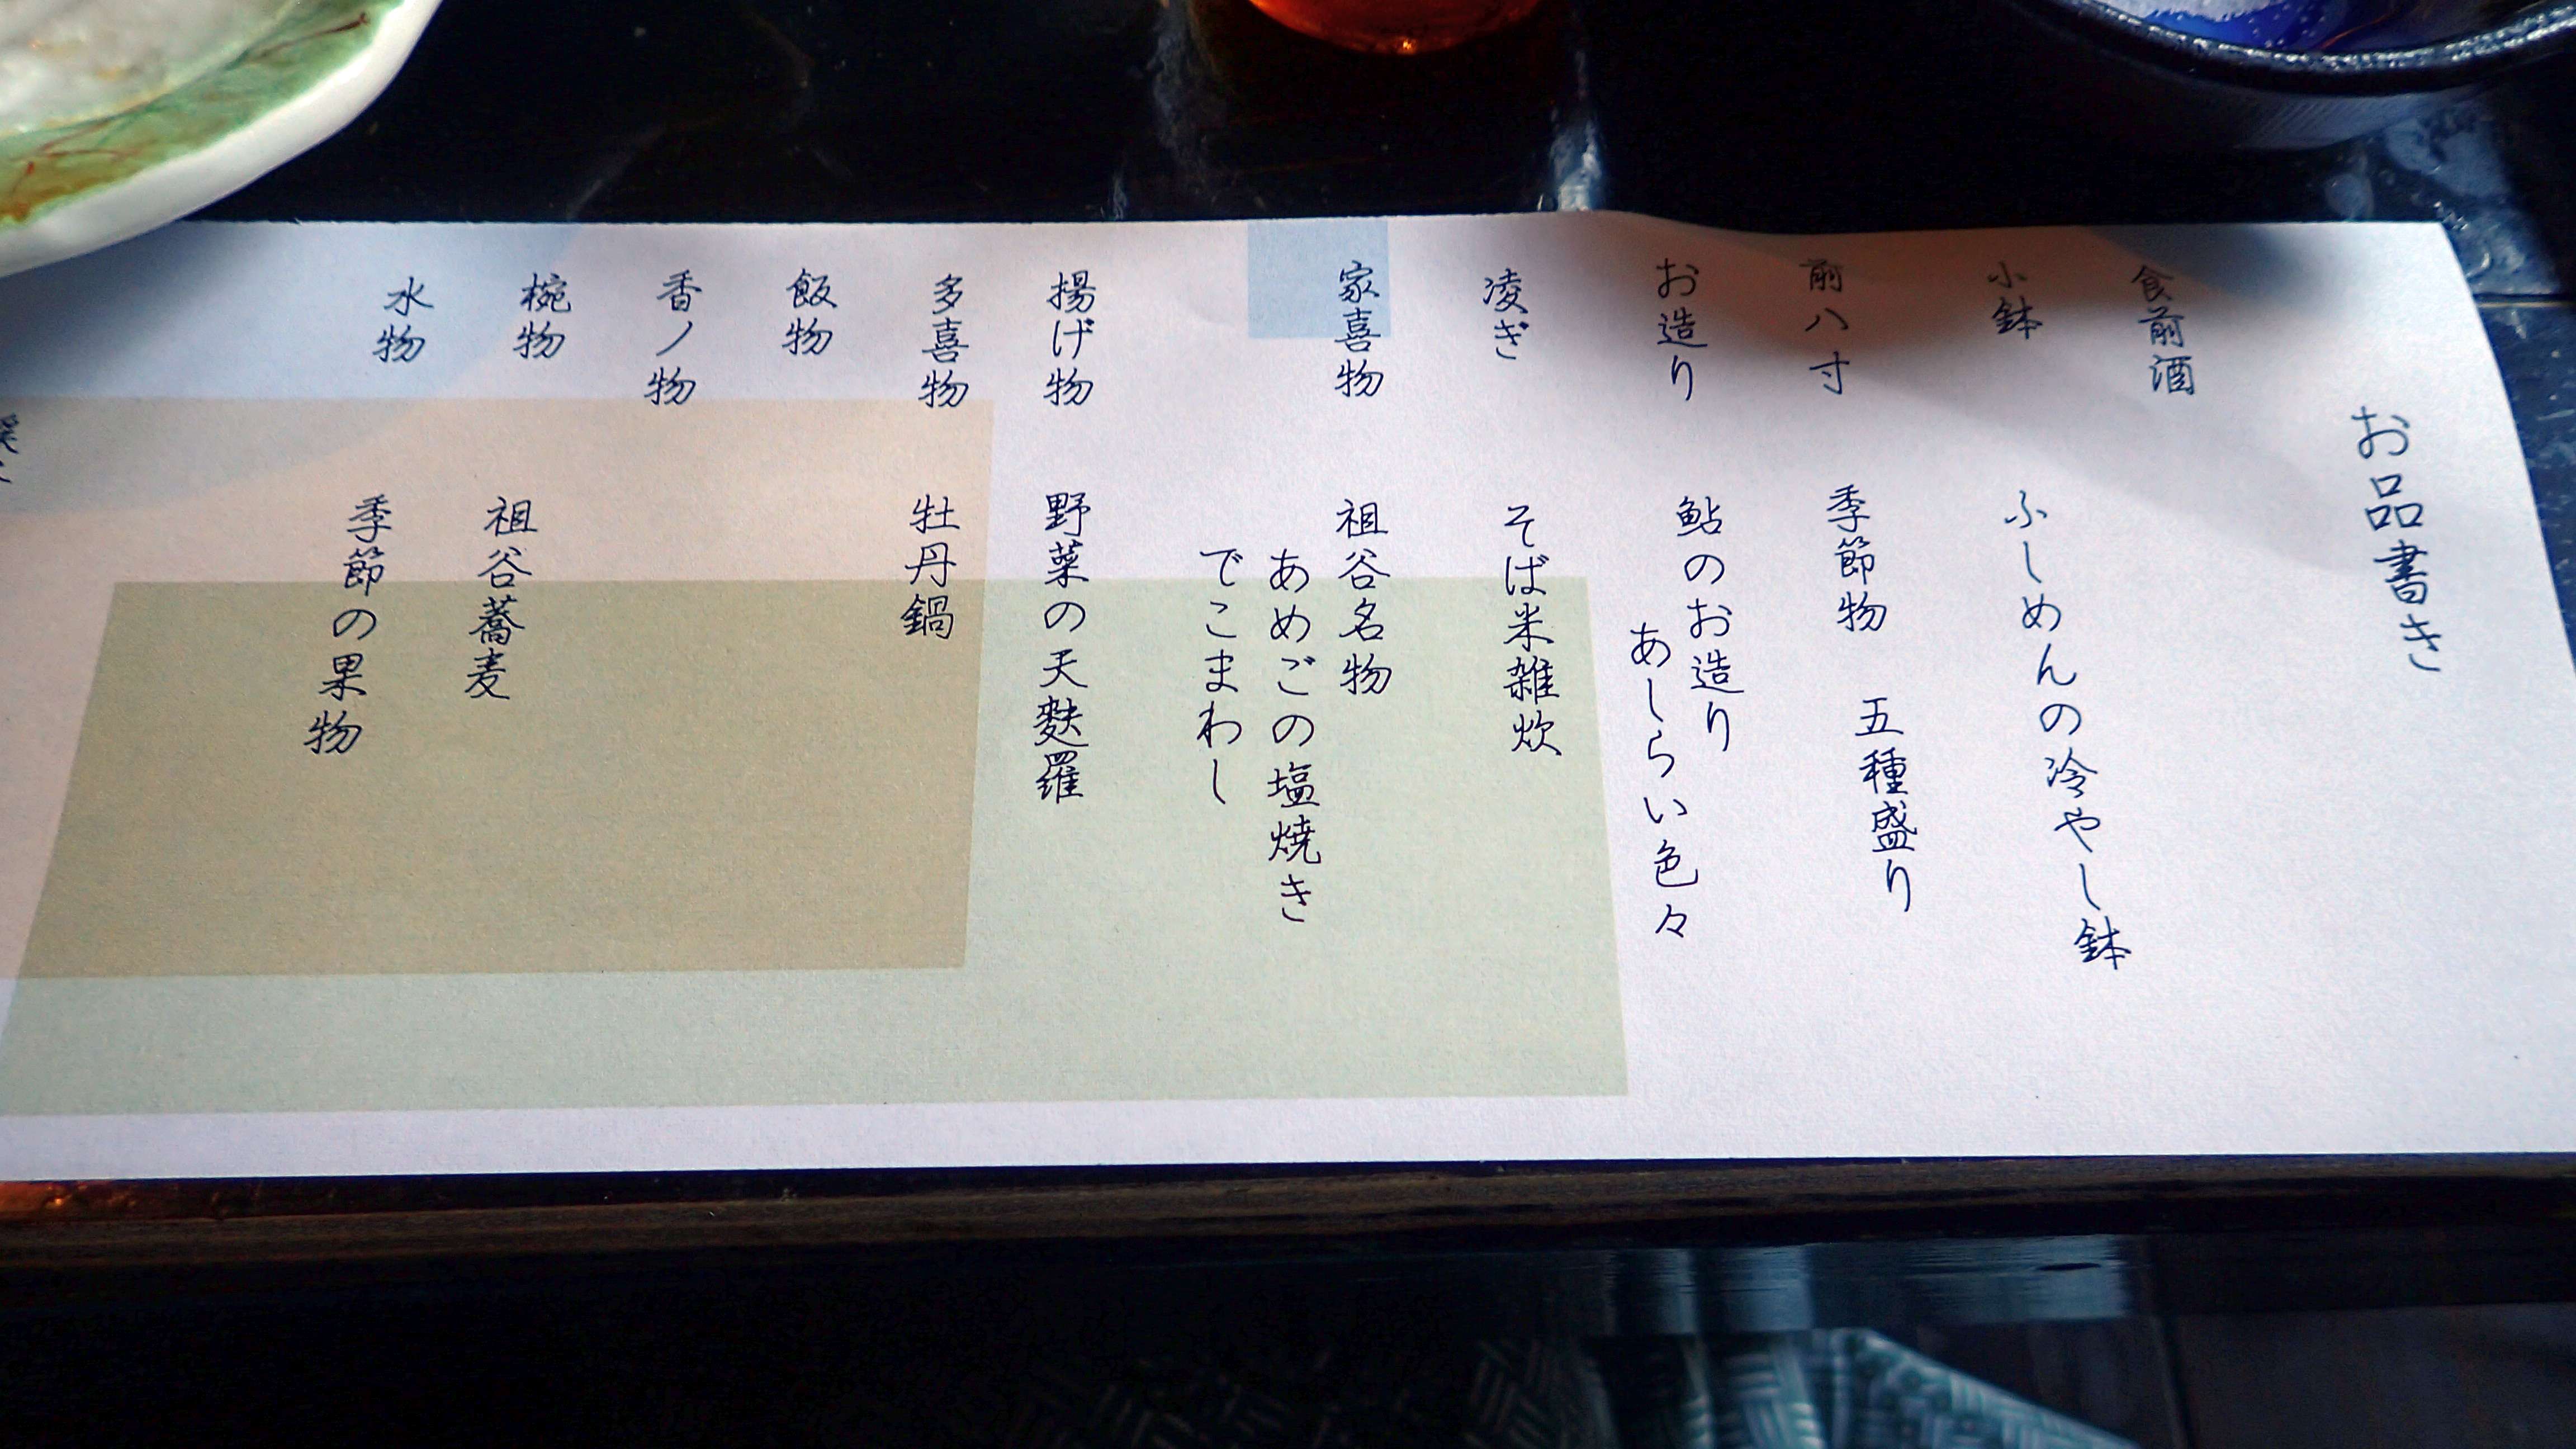 お品書き
食前酒
小鉢 ふしめんの冷やし鉢
前八寸 季節物 五種盛り
お造り 鮎のお造り
あしらい色々
凌ぎ そば米雑炊
家喜物 祖谷名物
あめごの塩焼き
でこまわし
揚げ物 野菜の天麩羅
多喜物 牡丹鍋
飯物
香ノ物
椀物 祖谷蕎麦
水物 季節の果物